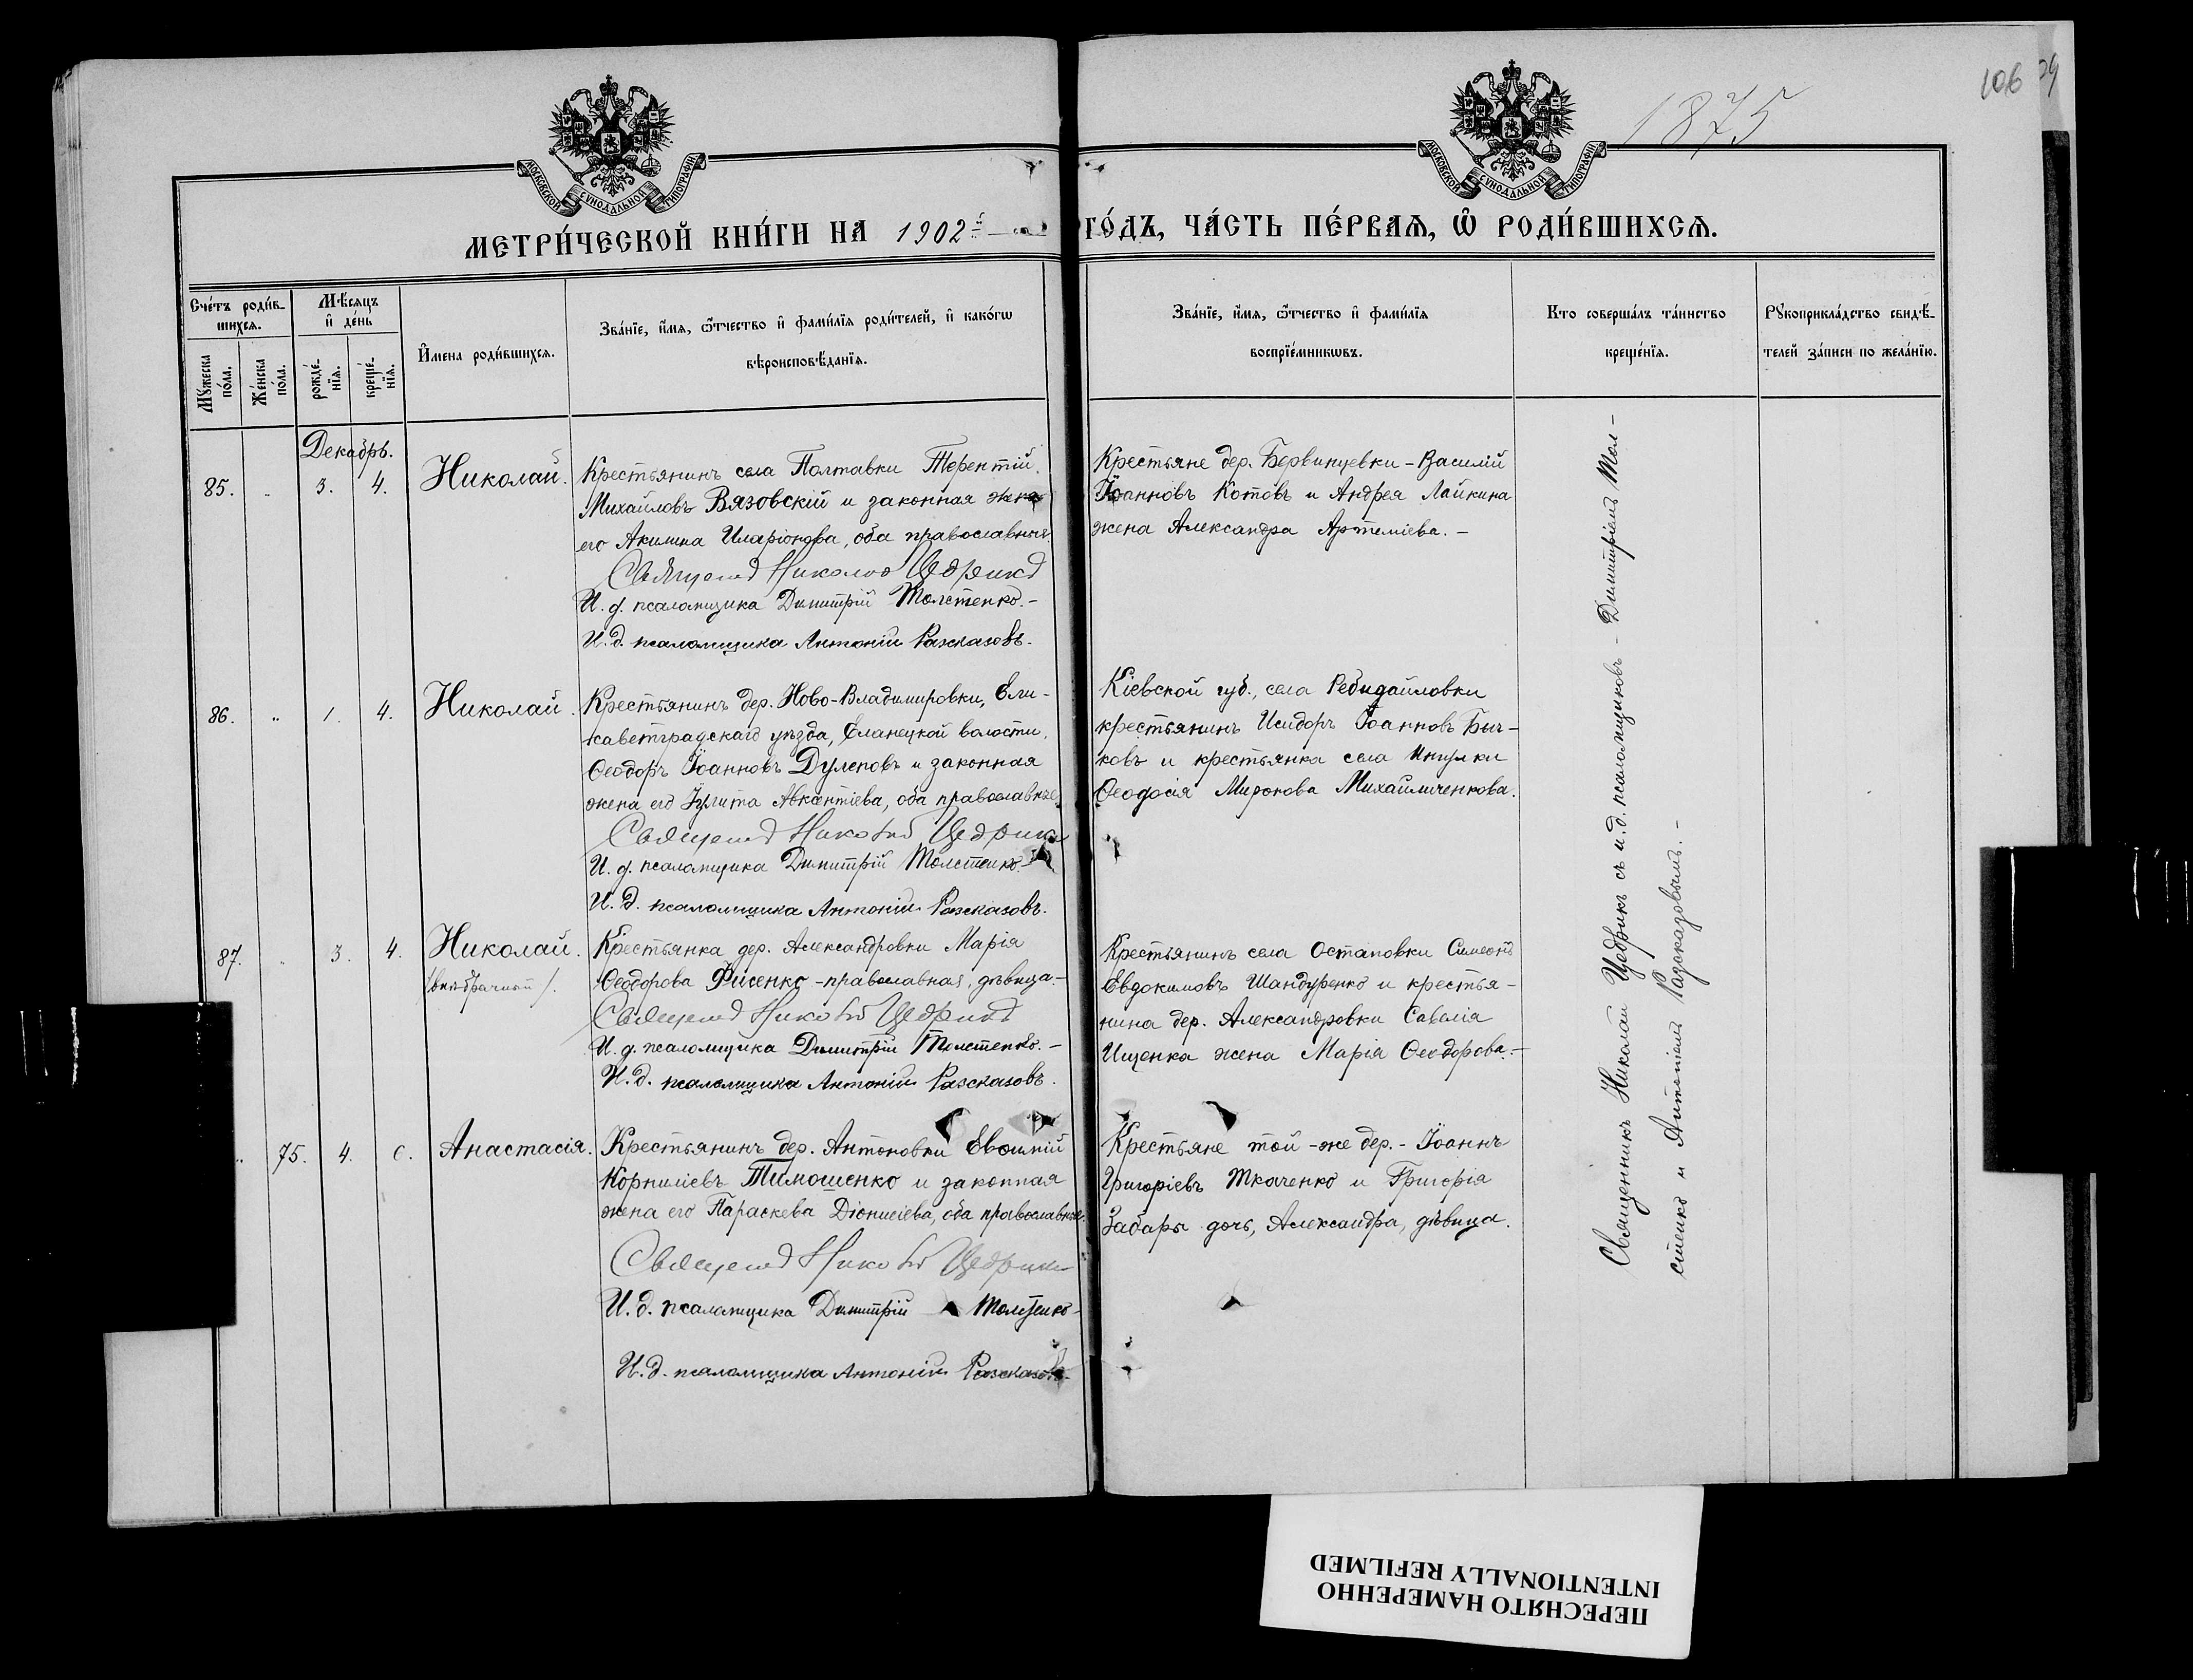 106
1875
МОСКОВСКОЙ СУНОДАЛЬНОЙ ТИПОГРАФІИ
МОСКОВСКОЙ СУНОДАЛЬНОЙ ТИПОГРАФІИ
МЕТРИ́ЧЕСКОЙ КНИ́ГИ НА 1902й ГО́ДЪ, ЧА́СТЬ ПЕ́РВАѦ, Ѡ҆ РОДИ́ВШИХСѦ.
Сче́тъ роди́в-
шихсѧ.
Мѣ́сѧцъ
и҆ де́нь
Мꙋ́жеска
по́ла.
Же́нска
по́ла.
рожде́-
нїѧ.
креще́-
нїѧ.
И҆мена роди́вшихсѧ.
Зва́нїе, и҆́мѧ, ѻ҆́тчество и҆ фами́лїѧ роди́телей, и҆ како́гѡ
вѣроисповѣ́данїѧ.
Зва́нїе, и҆́мѧ, ѻ҆́тчество и҆ фами́лїѧ
воспрїе́мникѡвъ.
Кто соверша́лъ та́инство
креще́нїѧ.
Рꙋкоприкла́дство свидѣ́-
телей за́писи по жела́нїю.
Декабрь.
85. „ 3. 4. Николай.
Крестьянинъ села Полтавки Терентій
Михайловъ Вязовскій и законная жена
его Акилина Иларіонова, оба православные.
Священникъ Николай Цедрикъ
И. д. псаломщика Димитрій Толстенко.-
И. д. псаломщика Антоній Разсказовъ.
Крестьяне дер. Бервинцевки - Василій
Іоанновъ Котовъ и Андрея Лайкина
жена Александра Артеміева. -
86. „ 1. 4. Николай.
Крестьянинъ дер. Ново-Владимировки, Ели-
саветградскаго уѣзда, Еланецкой волости,
Ѳеодоръ Іоанновъ Дулеповъ и законная
жена его Іулита Авксентіева, оба православные.
Священникъ Николай Цедрикъ
И. д. псаломщика Димитрій Толстенко.
И. д. псаломщика Антоній Разсказовъ.
Кіевской губ., села Ребидайловки
крестьянинъ Исидоръ Іоанновъ Быч-
ковъ и крестьянка села
Ѳеодосія Миронова Михайличенкова.
87. „ 3. 4. Николай.
/внѣбрачный/.
Крестьянка дер. Александровки Марія
Ѳеодорова Фисенко - православная, дѣвица.-
Священникъ Николай Цедрикъ
И. д. псаломщика Димитрій Толстенко.-
И. д. псаломщика Антоній Разсказовъ.
Крестьянинъ села Остановки Симеонъ
Евдокимовъ Шандуренко и крестья-
нина дер. Александровки Савелія
Ищенка жена Марія Ѳеодорова.-
„ 75. 4. Анастасія.
Крестьянинъ дер. Антоновки Евѳимій
Корниліевъ Тимошенко и законная
жена его Параскева Діонисіева, оба православные.
Священникъ Николай Цедрикъ
И. д. псаломщика Димитрій Толстенко-
И. д. псаломщика Антоній Разсказовъ-
Крестьяне той-же дер. - Іоаннъ
Григоріевъ Ткаченко и Григорія
Забары дочь, Александра, дѣвица.
Священникъ Николай Цедрикъ съ и.д. псаломщиковъ - Димитріемъ Тол-
стенко и Антоніемъ Разсказовымъ.-
ПЕРЕСНЯТО НАМЕРЕННО
INTENTIONALLY REFILMED